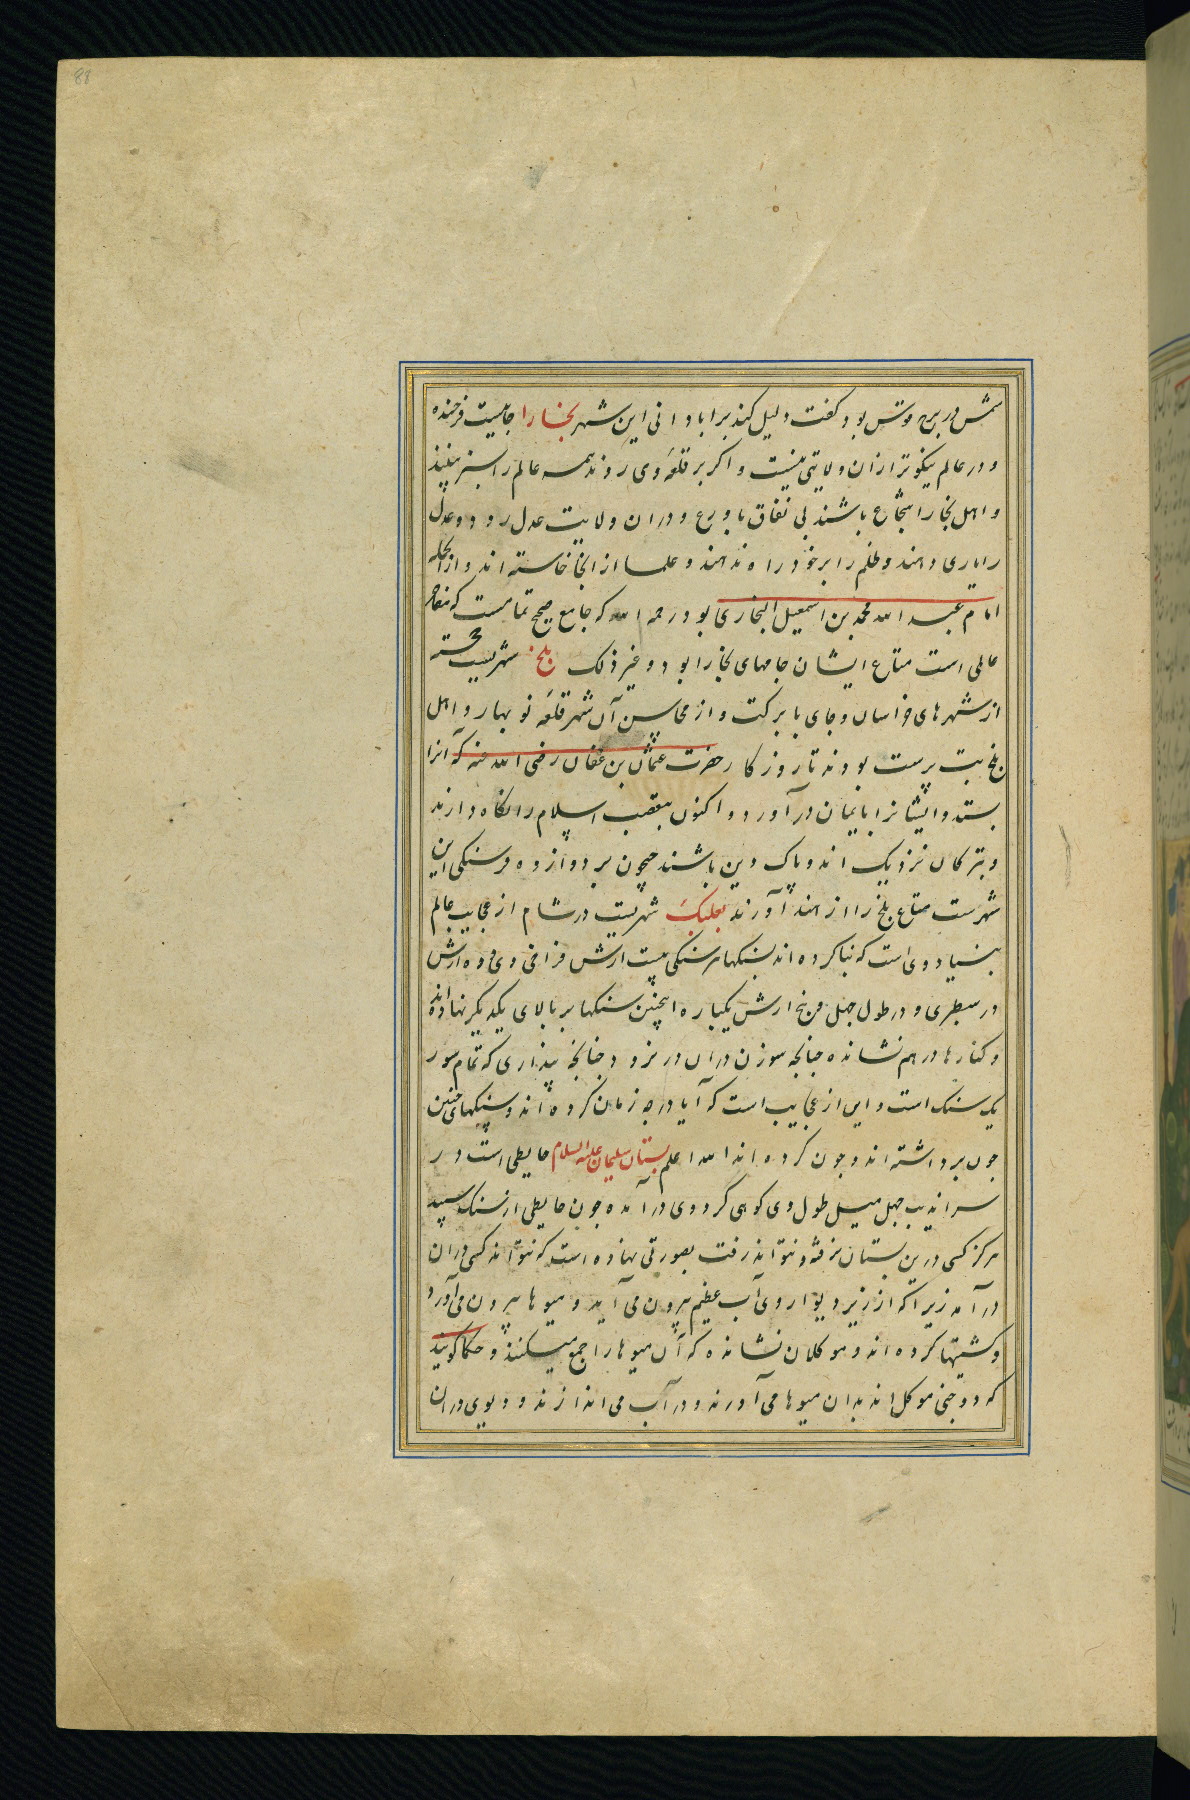 88
شمش در برج قوس بود گفت دلیل کند بر ابادانی این شهر بخارا جاییست فرخنده
و در عالم نیکوتر از ان ولایتی نیست و اگر بر قلعهٔ وی روند همه عالم را سبز بینند
و اهل بخارا شجاع باشند بی نفاق با ورع و در ان ولایت عدل رود و عدل
را یاری دهند و ظلم را بر خود راه ندهند و علما از انجا خاسته اند و از انجمله
امام عبد الله محمد بن اسمعیل البخاری بود رحمه الله که جامع صحیح تمامست که
عالی است متاع ایشان جامهای بخارا بود و غیر ذلک بلخ شهریست خجسته
از شهرهای خراسان و جای با برکت و از محاسن آن شهر قلعه نوبهار و اهل
بلخ بت پرست بودند تا روزگار حضرت عثمان بن عفان رضی الله عنه که انرا
بستد و ایشانرا بایمان در آورد و اکنون بتعصب اسلام را نگاه دارند
و بترکان نزدیک اند و پاک دین باشند جیحون بر دوازده فرسنکی این
شهرست متاع بلخ را از هند آورند بعلبک شهریست در شام از عجایب عالم
بنیاد وی است که بنا کرده اند بسنکها هر سنکی بیست ارش فراخی وی و ده ارش
در سطبری و در طول چهل و پنج ارش یکباره اینچنین سنکها بر بالای یکدیکر نهاده اند
و کنارها در هم نشانده جنانجه سوزن در ان در نرود جنانجه پنداری که تمام سور
یک سنک است و این از عجایب است که آیا در چه زمان کرده اند و سنکهای چنین
جون برداشته اند و جون کرده اند الله اعلم بستان سلیمان علیه السلام حایطی است در
سراندیب چهل میل طول وی کوهی کرد وی در آمده جون حایطی از سنک سپید
هرکز کسی درین بستان نرفته و نتواند رفت بصورتی نهاده است که نتواند کسی در ان
در آمد زیرا که از زیر دیوار وی آب عظیم بیرون می آید و میوها بیرون می آورد
و کشتیها کرده اند و موکلان نشانده که آن میوها را جمع میکنند و حکما گویند
که دو جنی موکل اند بدان میوها می آورند و در آب می اندازند و دیوی در ان